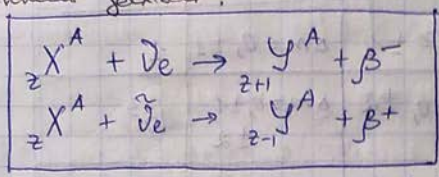 zX^A + ν_e → z+1Y^A + β^-
zX^A + ν̃_e → z-1Y^A + β^+